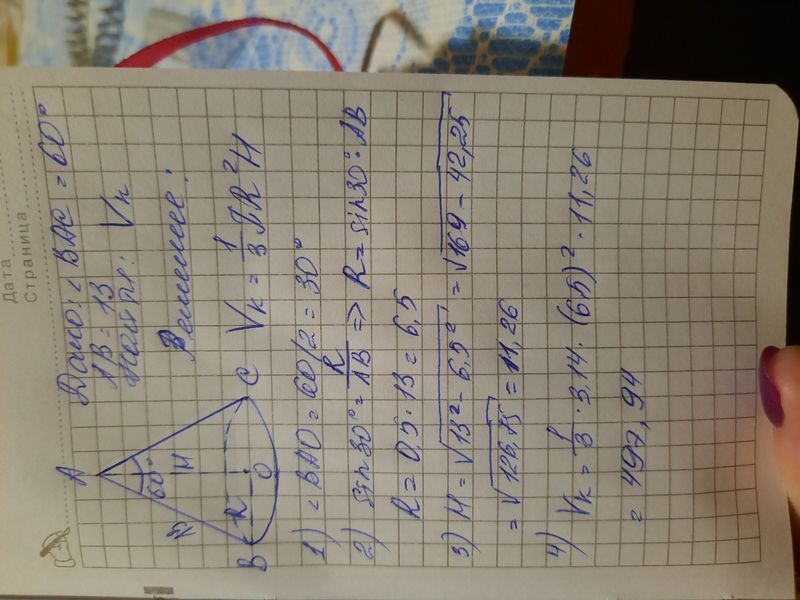 Дата
Страница
Дано: ∠ BAC = 60°
AB = 13
Найти: Vк
Решение:
A
60°
H
R
B
O
C
Vк = 1/3 πR²H
1) ∠BAO = 60/2 = 30°
2) sin30° = R/AB => R = sin30° · AB
R = 0,5 · 13 = 6,5
3) H = √13² - 6,5² = √169 - 42,25
= √126,75 = 11,26
4) Vк = 1/3 · 3,14 · (6,5)² · 11,26
= 497,94